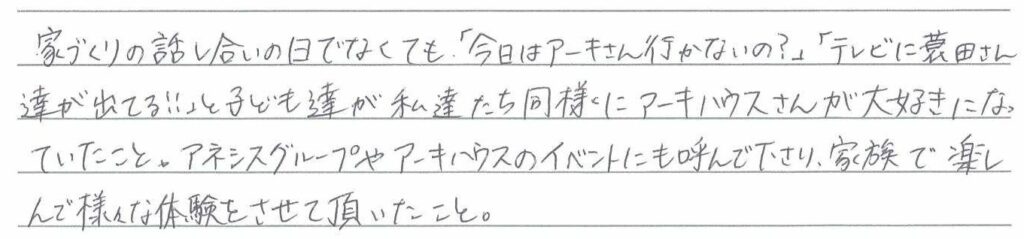 家づくりの話し合いの日でなくても、「今日はアーキさん行かないの?」「テレビに蓑田さん
達が出てる!!」と子ども達が私達たち同様くにアーキハウスさんが大好きになっ
ていたこと。アネシスグループやアーキハウスのイベントにも呼んで下さり、家族で楽し
んで様々な体験をさせて頂いたこと。